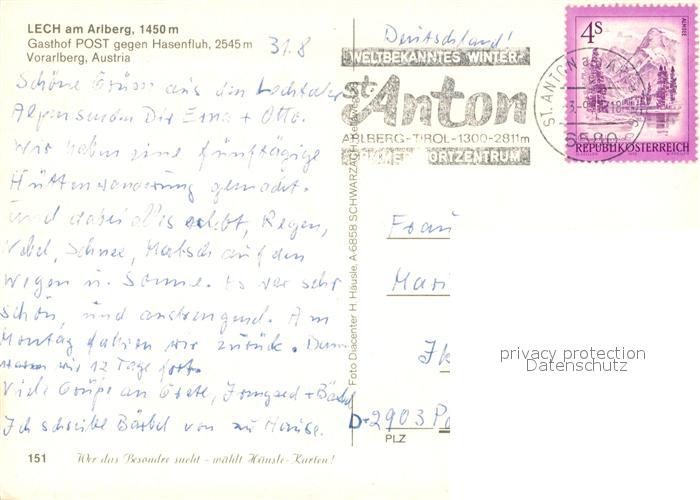 LECH am Arlberg, 1450 m
Gasthof POST gegen Hasenfluh, 2545 m
Vorarlberg, Austria
31.8
Schöne Grüsse aus den Lechtaler
Alpen senden Dir Erna + Otto.
Wir haben eine fünftägige
Hüttenwanderung gemacht.
Und dabei alles erlebt, Regen,
Nebel, Schnee, Matsch auf den
Wegen u. Sonne. Es war sehr
schön, und anstrengend. Am
Montag fahren wir zurück. Dann
waren wir 12 Tage fort.
Viele Grüße an Grete, Irmgard + Bärbel
Ich schreibe Bärbel von zu Hause.
151 Wer das Besondre sucht - wählt Häusle-Karten!
Foto Diacenter H. Häusle, A 6858 SCHWARZACH
Deutschland!
WELTBEKANNTES WINTER-
St. Anton
ARLBERG-TIROL-1300-2811m
ORTZENTRUM
ST. ANTON
6580
4S
REPUBLIK ÖSTERREICH
Frau
Mari
D-2903
PLZ
privacy protection
Datenschutz